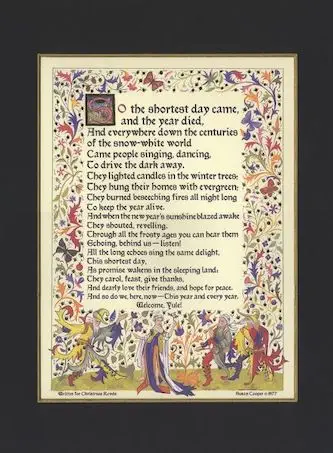 SO the shortest day came,
and the year died,
And everywhere down the centuries
of the snow-white world
Came people singing, dancing,
To drive the dark away.
They lighted candles in the winter trees;
They hung their homes with evergreen;
They burned beseeching fires all night long
To keep the year alive.
And when the new year's sunshine blazed awake
They shouted, revelling.
Through all the frosty ages you can hear them
Echoing, behind us—listen!
All the long echoes sing the same delight,
This shortest day,
As promise wakens in the sleeping land:
They carol, feast, give thanks,
And dearly love their friends, and hope for peace.
And so do we, here, now—This year and every year.
Welcome, Yule!
Written for Christmas Revels
Susan Cooper © 1977